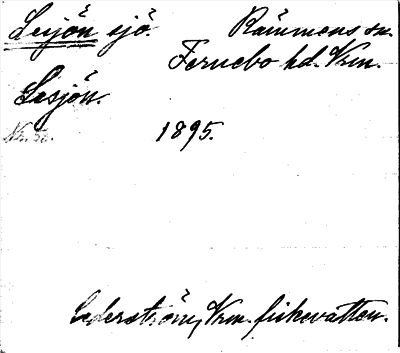 Lesjön sjö Rämmens sn.
Fernebo hd. Vrm.
Lesjön.
1895.
Cederström, Vrm. fiskevatten.